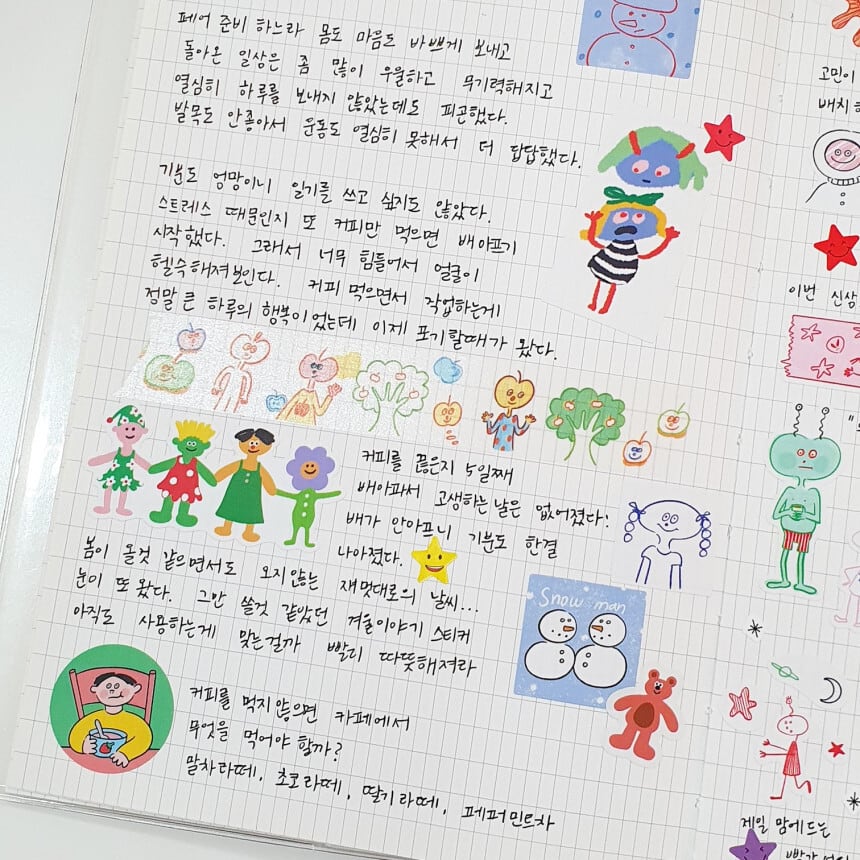 페어 준비 하느라 몸도 마음도 바쁘게 보내고
돌아온 일상은 좀 많이 우울하고 무기력해지고
열심히 하루를 보내지 않았는데도 피곤했다.
발목도 안좋아서 운동도 열심히 못해서 더 답답했다.
기분도 엉망이니 일기를 쓰고 싶지도 않았다.
스트레스 때문인지 또 커피만 먹으면 배아프기
시작했다. 그래서 너무 힘들어서 얼굴이
헬쓱해져보인다. 커피 먹으면서 작업하는게
정말 큰 하루의 행복이었는데 이제 포기할때가 왔다.
커피를 끊은지 5일째
배아파서 고생하는 날은 없어졌다!
배가 안아프니 기분도 한결
나아졌다.
봄이 올것 같으면서도 오지않는 제멋대로의 날씨...
눈이 또 왔다. 그만 쓸것 같았던 겨울이야기 스티커
아직도 사용하는게 맞는걸까 빨리 따뜻해져라
Snow man
커피를 먹지않으면 카페에서
무엇을 먹어야 할까?
말차라떼, 초코라떼, 딸기라떼, 페퍼민트차
고민이
배치
이번 신상
제일 맘에드는